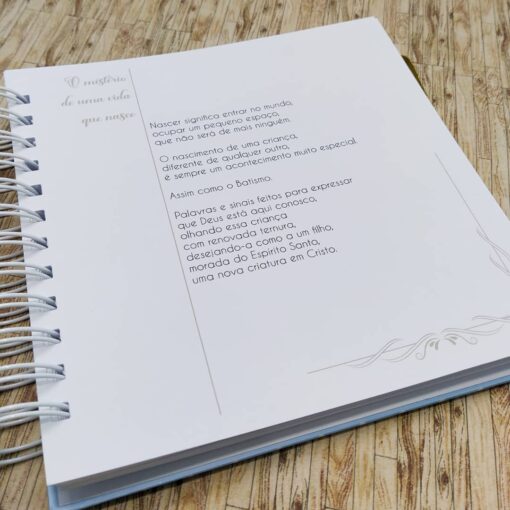 O mistério
de uma vida
que nasce
Nascer significa entrar no mundo,
ocupar um pequeno espaço,
que não será de mais ninguém.
O nascimento de uma criança,
diferente de qualquer outro,
é sempre um acontecimento muito especial.
Assim como o Batismo.
Palavras e sinais feitos para expressar
que Deus está aqui conosco,
olhando essa criança
com renovada ternura,
desejando-a como a um filho,
morada do Espírito Santo,
uma nova criatura em Cristo.